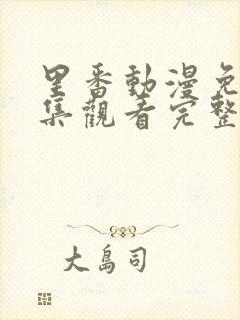 里番動漫免
集觀看完整
大島司